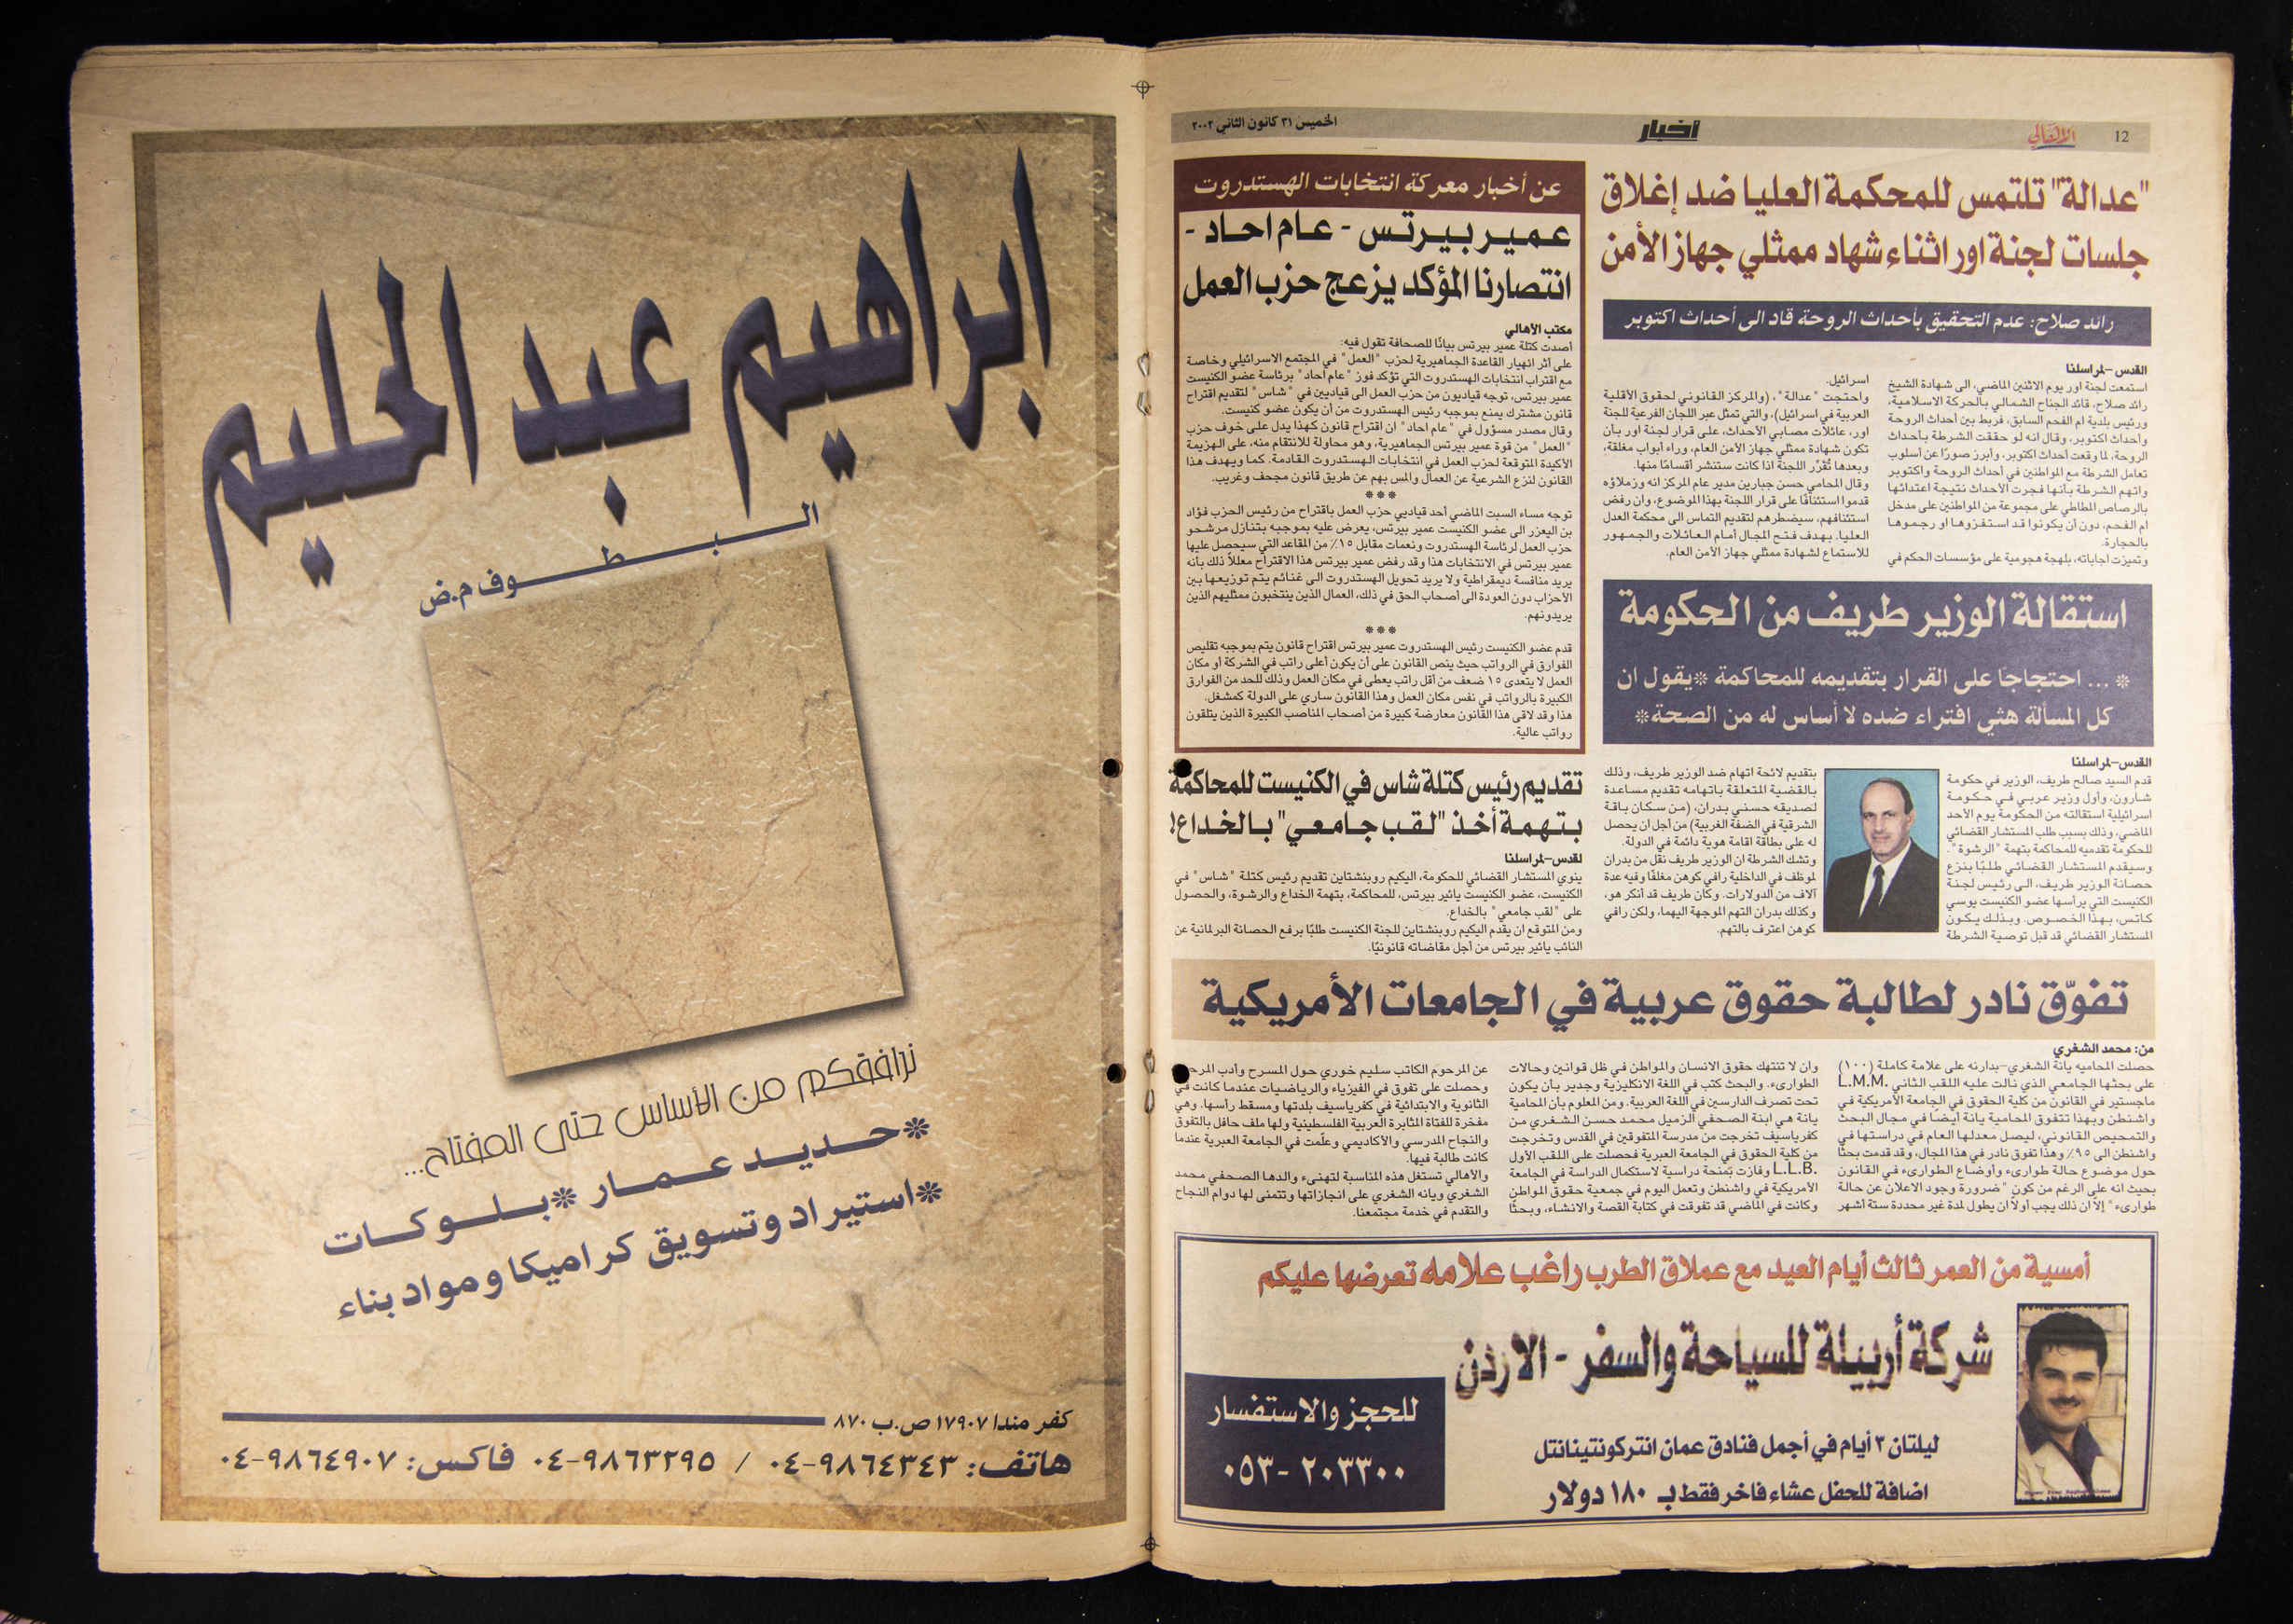 12
الأهالي
أخبار
الخميس ٣١ كانون الثاني ٢٠٠٢
"عدالة" تلتمس للمحكمة العليا ضد إغلاق
جلسات لجنة اور اثناء شهاد ممثلي جهاز الأمن
رائد صلاح: عدم التحقيق بأحداث الروحة قاد الى أحداث اكتوبر
القدس -لمراسلنا
استمعت لجنة اور يوم الاثنين الماضي، الى شهادة الشيخ
رائد صلاح، قائد الجناح الشمالي بالحركة الاسلامية،
ورئيس بلدية ام الفحم السابق، فربط بين أحداث الروحة
وأحداث اكتوبر، وقال انه لو حققت الشرطة بأحداث
الروحة، لما وقعت أحداث اكتوبر، وأبرز صورًا عن أسلوب
تعامل الشرطة مع المواطنين في أحداث الروحة واكتوبر
واتهم الشرطة بأنها فجرت الأحداث نتيجة اعتدائها
بالرصاص المطاطي على مجموعة من المواطنين على مدخل
ام الفحم، دون أن يكونوا قد استفزوها او رجموها
بالحجارة.
وتميزت اجاباته، بلهجة هجومية على مؤسسات الحكم في
اسرائيل.
واحتجت "عدالة"، (والمركز القانوني لحقوق الأقلية
العربية في اسرائيل)، والتي تمثل عبر اللجان الفرعية للجنة
اور، عائلات مصابي الأحداث، على قرار لجنة اور بأن
تكون شهادة ممثلي جهاز الأمن العام، وراء أبواب مغلقة،
وبعدها تُقرِّر اللجنة اذا كانت ستنشر أقسامًا منها.
وقال المحامي حسن جبارين مدير عام المركز انه وزملاؤه
قدموا استئنافًا على قرار اللجنة بهذا الموضوع، وان رفض
استئنافهم، سيضطرهم لتقديم التماس الى محكمة العدل
العليا. بهدف فتح المجال أمام العائلات والجمهور
للاستماع لشهادة ممثلي جهاز الأمن العام.
استقالة الوزير طريف من الحكومة
* ... احتجاجًا على القرار بتقديمه للمحاكمة *يقول ان
كل المسألة هثي افتراء ضده لا أساس له من الصحة*
القدس-لمراسلنا
قدم السيد صالح طريف، الوزير في حكومة
شارون، وأول وزير عربي في حكومة
اسرائيلية استقالته من الحكومة يوم الأحد
الماضي، وذلك بسبب طلب المستشار القضائي
للحكومة تقدميه للمحاكمة بتهمة "الرشوة".
وسيقدم المستشار القضائي طلبًا بنزع
حصانة الوزير طريف، الى رئيس لجنة
الكنيست التي يرأسها عضو الكنيست يوسي
كاتس، بهذا الخصوص. وبذلك يكون
المستشار القضائي قد قبل توصية الشرطة
بتقديم لائحة اتهام ضد الوزير طريف، وذلك
بالقضية المتعلقة باتهامه تقديم مساعدة
لصديقه حسني بدران، (من سكان باقة
الشرقية في الضفة الغربية) من أجل ان يحصل
له على بطاقة اقامة هوية دائمة في الدولة.
وتشك الشرطة ان الوزير طريف نقل من بدران
لموظف في الداخلية رافي كوهن مغلفًا وفيه عدة
آلاف من الدولارات. وكان طريف قد أنكر هو،
وكذلك بدران التهم الموجهة اليهما، ولكن رافي
كوهن اعترف بالتهم.
عن أخبار معركة انتخابات الهستدروت
عمير بيرتس - عام احاد -
انتصارنا المؤكد يزعج حزب العمل
مكتب الأهالي
أصدت كتلة عمير بيرتس بيانًا للصحافة تقول فيه:
على أثر انهيار القاعدة الجماهيرية لحزب "العمل" في المجتمع الاسرائيلي وخاصة
مع اقتراب انتخابات الهستدروت التي تؤكد فوز "عام احاد" برئاسة عضو الكنيست
عمير بيرتس، توجه قياديون من حزب العمل الى قياديين في "شاس" لتقديم اقتراح
قانون مشترك يمنع بموجبه رئيس الهستدروت من أن يكون عضو كنيست.
وقال مصدر مسؤول في "عام احاد" ان اقتراح قانون كهذا يدل على خوف حزب
"العمل" من قوة عمير بيرتس الجماهيرية، وهو محاولة للانتقام منه، على الهزيمة
الأكيدة المتوقعة لحزب العمل في انتخابات الهستدروت القادمة. كما ويهدف هذا
القانون لنزع الشرعية عن العمال والمس بهم عن طريق قانون مجحف وغريب.
***
توجه مساء السبت الماضي أحد قياديي حزب العمل باقتراح من رئيس الحزب فؤاد
بن اليعزر الى عضو الكنيست عمير بيرتس، يعرض عليه بموجبه بتنازل مرشحو
حزب العمل لرئاسة الهستدروت ونعمات مقابل ١٥٪ من المقاعد التي سيحصل عليها
عمير بيرتس في الانتخابات هذا وقد رفض عمير بيرتس هذا الاقتراح معللاً ذلك بأنه
يريد منافسة ديمقراطية ولا يريد تحويل الهستدروت الى غنائم يتم توزيعها بين
الأحزاب دون العودة الى أصحاب الحق في ذلك، العمال الذين ينتخبون ممثليهم الذين
يريدونهم.
***
قدم عضو الكنيست رئيس الهستدروت عمير بيرتس اقتراح قانون يتم بموجبه تقليص
الفوارق في الرواتب حيث ينص القانون على أن يكون أعلى راتب في الشركة أو مكان
العمل لا يتعدى ١٥ ضعف من أقل راتب يعطى في مكان العمل وذلك للحد من الفوارق
الكبيرة بالرواتب في نفس مكان العمل وهذا القانون ساري على الدولة كمشغل.
هذا وقد لاقى هذا القانون معارضة كبيرة من أصحاب المناصب الكبيرة الذين يتلقون
رواتب عالية.
تقديم رئيس كتلة شاس في الكنيست للمحاكمة
بتهمة أخذ "لقب جامعي" بالخداع!
لقدس-لمراسلنا
ينوي المستشار القضائي للحكومة، اليكيم روبنشتاين تقديم رئيس كتلة "شاس" في
الكنيست، عضو الكنيست يائير بيرتس، للمحاكمة، بتهمة الخداع والرشوة، والحصول
على "لقب جامعي" بالخداع.
ومن المتوقع ان يقدم اليكيم روبنشتاين للجنة الكنيست طلبًا برفع الحصانة البرلمانية عن
النائب يائير بيرتس من أجل مقاضاته قانونيًا.
تفوّق نادر لطالبة حقوق عربية في الجامعات الأمريكية
من: محمد الشغري
حصلت المحاميه يانة الشغري-بدارنه على علامة كاملة (١٠٠)
على بحثها الجامعي الذي نالت عليه اللقب الثاني L.M.M.
ماجستير في القانون من كلية الحقوق في الجامعة الأمريكية في
واشنطن وبهذا تتفوق المحامية يانة أيضًا في مجال البحث
والتمحيص القانوني، ليصل معدلها العام في دراستها في
واشنطن الى ٩٥٪ وهذا تفوق نادر في هذا المجال، وقد قدمت بحثًا
حول موضوع حالة طوارىء وأوضاع الطوارىء في القانون
بحيث انه على الرغم من كون "ضرورة وجود الاعلان عن حالة
طوارىء" إلاّ ان ذلك يجب أولاً ان يطول لمدة غير محددة ستة أشهر
وان لا تنتهك حقوق الانسان والمواطن في ظل قوانين وحالات
الطوارىء. والبحث كتب في اللغة الانكليزية وجدير بأن يكون
تحت تصرف الدارسين في اللغة العربية. ومن المعلوم بأن المحامية
يانة هي ابنة الصحفي الزميل محمد حسن الشغري من
كفرياسيف تخرجت من مدرسة المتفوقين في القدس وتخرجت
من كلية الحقوق في الجامعة العبرية فحصلت على اللقب الأول
L.L.B. وفازت بمنحة دراسية لاستكمال الدراسة في الجامعة
الأمريكية في واشنطن وتعمل اليوم في جمعية حقوق المواطن
وكانت في الماضي قد تفوقت في كتابة القصة والانشاء، وبحثًا
عن المرحوم الكاتب سليم خوري حول المسرح وأدب المرح
وحصلت على تفوق في الفيزياء والرياضيات عندما كانت في
الثانوية والابتدائية في كفرياسيف بلدتها ومسقط رأسها. وهي
مفخرة للفتاة المثابرة العربية الفلسطينية ولها ملف حافل بالتفوق
والنجاح المدرسي والأكاديمي وعلّمت في الجامعة العبرية عندما
كانت طالبة فيها.
والأهالي تستغل هذه المناسبة لتهنىء والدها الصحفي محمد
الشغري ويانه الشغري على انجازاتها وتتمنى لها دوام النجاح
والتقدم في خدمة مجتمعنا.
أمسية من العمر ثالث أيام العيد مع عملاق الطرب راغب علامه تعرضها عليكم
شركة أربيلة للسياحة والسفر - الاردن
ليلتان ٣ أيام في أجمل فنادق عمان انتركونتيننتال
اضافة للحفل عشاء فاخر فقط بـ ١٨٠ دولار
للحجز والاستفسار
٠٥٣-٢٠٣٣٠٠
ابراهيم عبد الحليم
البطوف م.ض
نرافقكم من الأساس حتى المفتاح...
*حديد عمار *بلوكات
*استيراد وتسويق كراميكا ومواد بناء
كفر مندا ١٧٩٠٧ ص.ب ٨٧٠
هاتف: ٩٨٦٤٣٤٣-٠٤ / ٩٨٦٣٢٩٥-٠٤ فاكس: ٩٨٦٤٩٠٧-٠٤